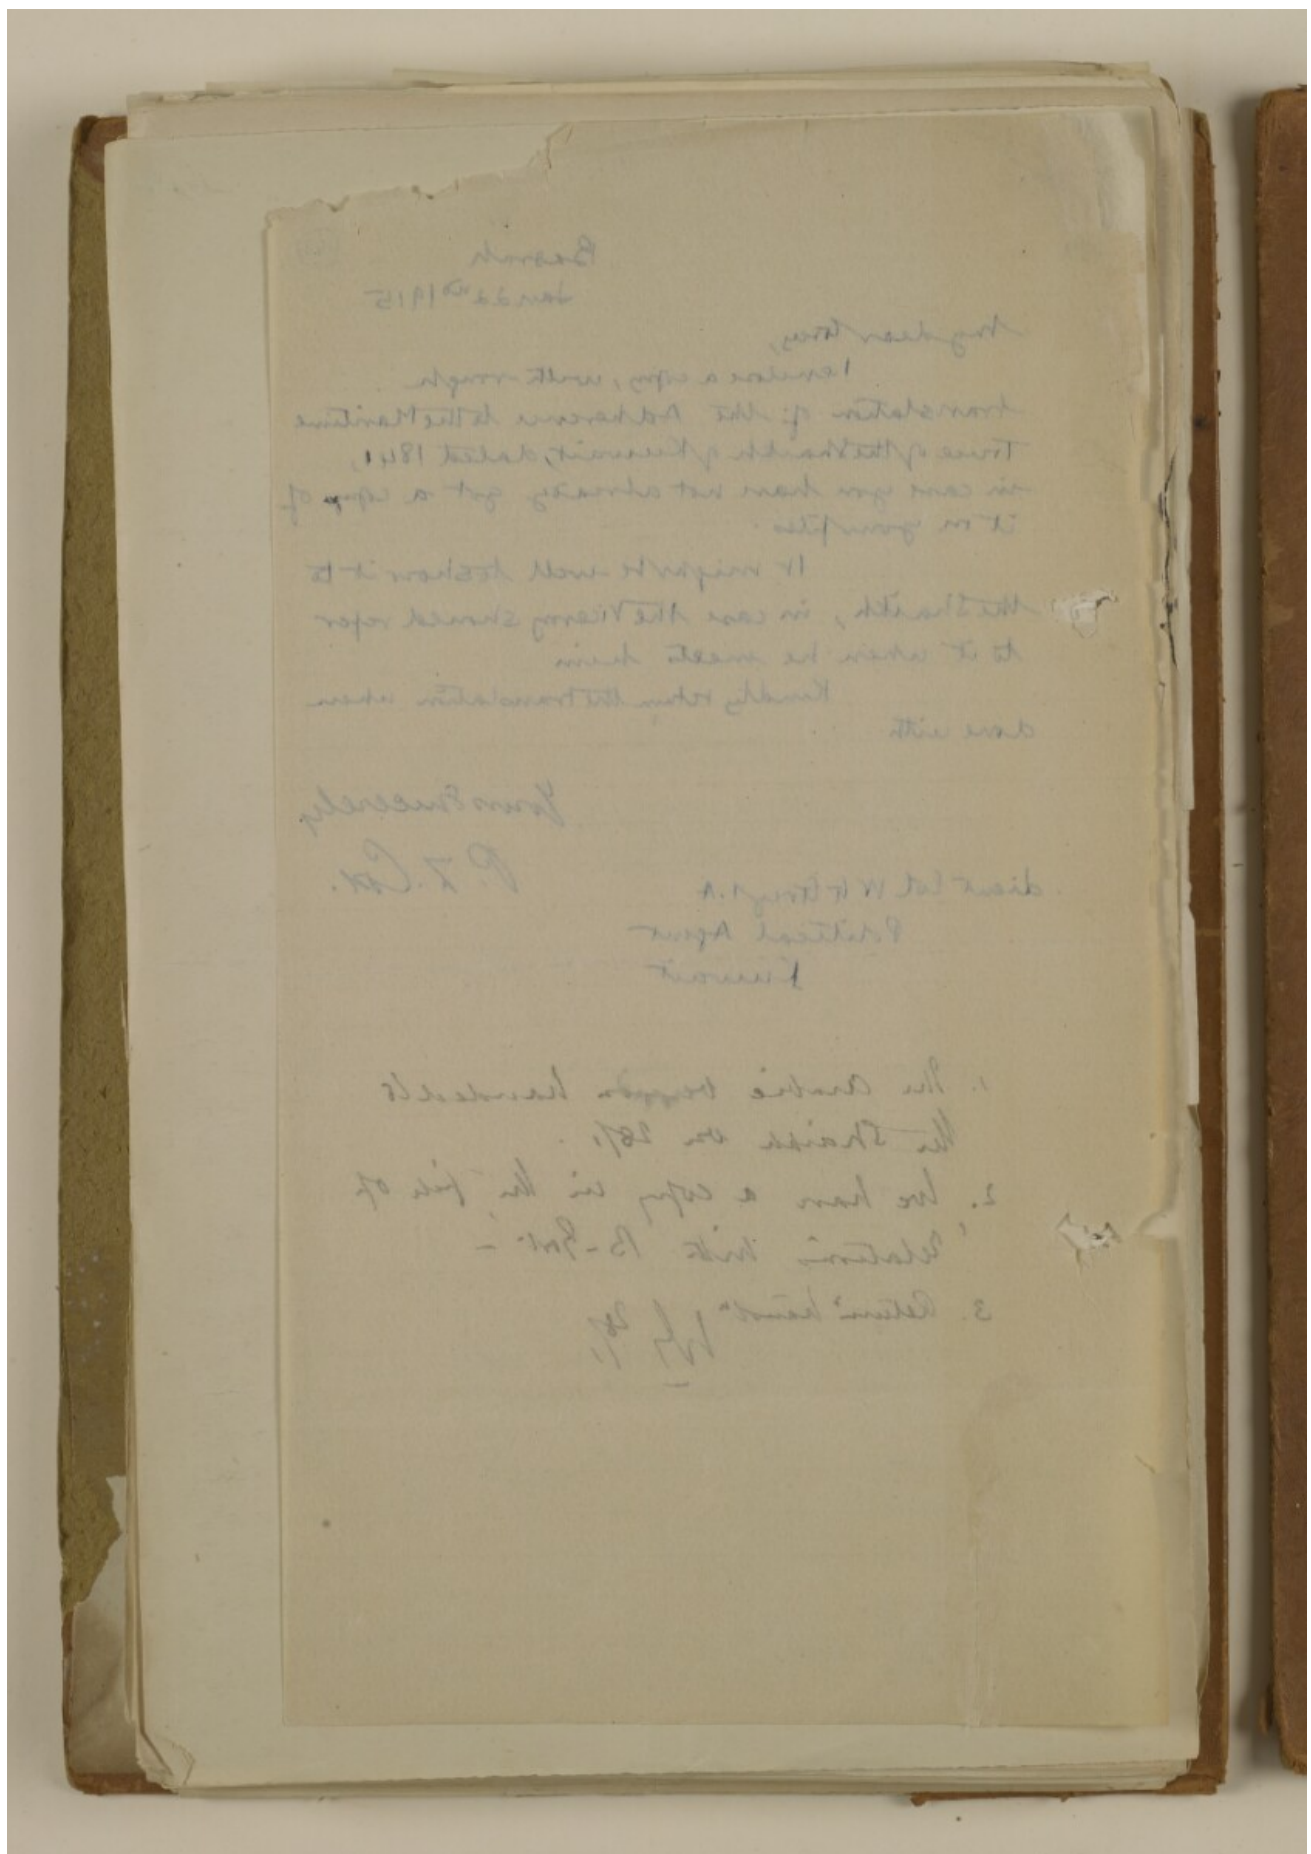 Basrah
Jan 22nd 1915
My dear Grey,
I enclose a copy, with rough
translation of the Adherence to the Maritime
Truce of the Shaikh of Kuwait, dated 1841,
in case you have not already got a copy of
it on your files
It might be well to show it to
the Shaikh, in case the Viceroy should refer
to it when he meets him
Kindly return the translation when
done with
Yours Sincerely
P. Z. Cox.
Lieut Col W G Grey I.A
Political Agent
Kuwait
1. The Arabic version handed to
the Shaikh on 28/1.
2. We have a copy in the file of
relations with B-Govt -
3. Return
28/1